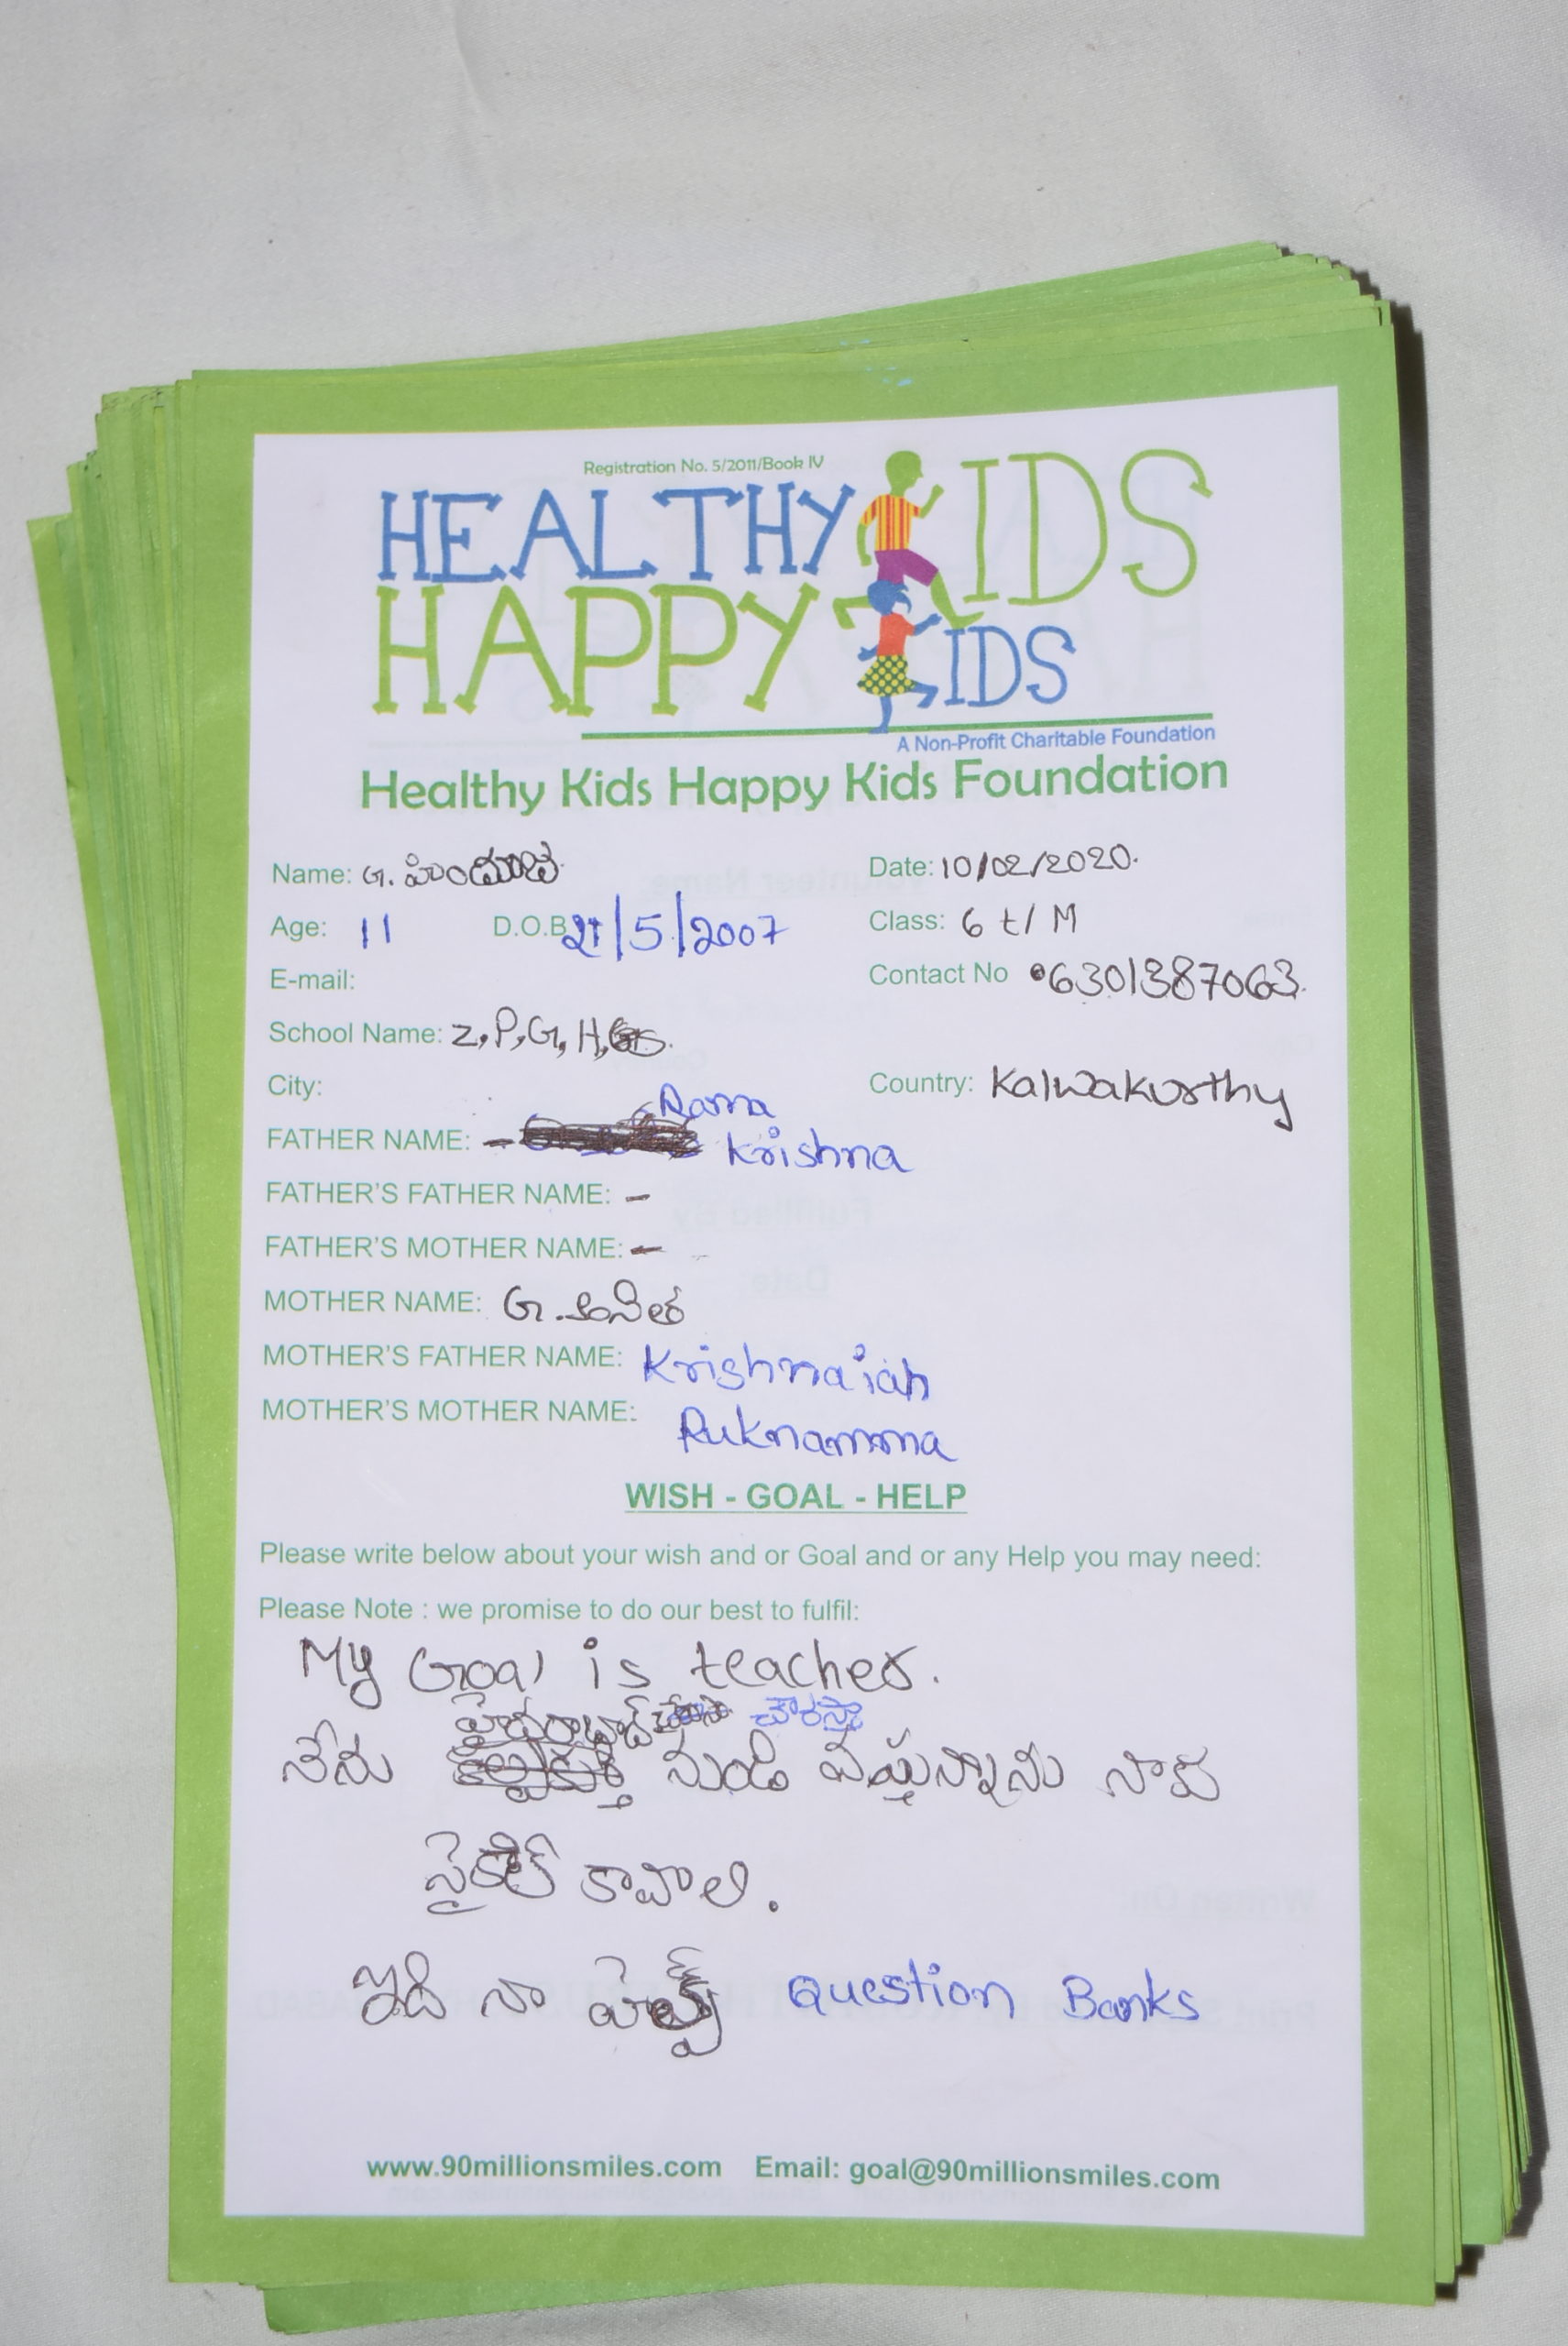 Registration No. 5/2011/Book IV
HEALTHY KIDS
HAPPY KIDS
A Non-Profit Charitable Foundation
Healthy Kids Happy Kids Foundation
Name: G. హిందూజ. Date: 10/02/2020.
Age: 11 D.O.B 21/5/2007 Class: 6 t/ M
E-mail: Contact No 6301387063.
School Name: Z, P, G, H,
City: Country: Kalwakurthy
FATHER NAME: - Rama Krishna
FATHER'S FATHER NAME: -
FATHER'S MOTHER NAME: -
MOTHER NAME: G. అనిత
MOTHER'S FATHER NAME: Krishnaiah
MOTHER'S MOTHER NAME: Ruknamma
WISH - GOAL - HELP
Please write below about your wish and or Goal and or any Help you may need:
Please Note : we promise to do our best to fulfil:
My Goal is teacher.
హైదరాబాద్ చౌరస్తా
నేను నుండి వస్తున్నాను నాకు
సైకిల్ కావాలి.
ఇది నా హెల్ప్ Question Banks
www.90millionsmiles.com Email: goal@90millionsmiles.com